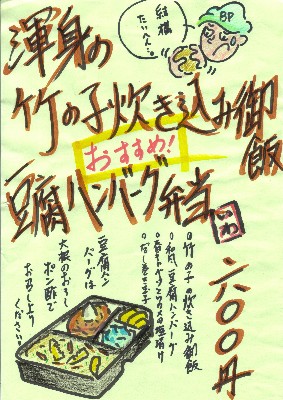 渾身の
竹の子炊き込み御飯
豆腐ハンバーグ弁当
おすすめ!
結構
たいへん…
BP
六〇〇円
◎竹の子の炊き込み御飯
◎和風豆腐ハンバーグ
◎だし巻き玉子
豆腐ハン
バーグは
大根のおろし
ポン酢で
お召し上がり
ください。